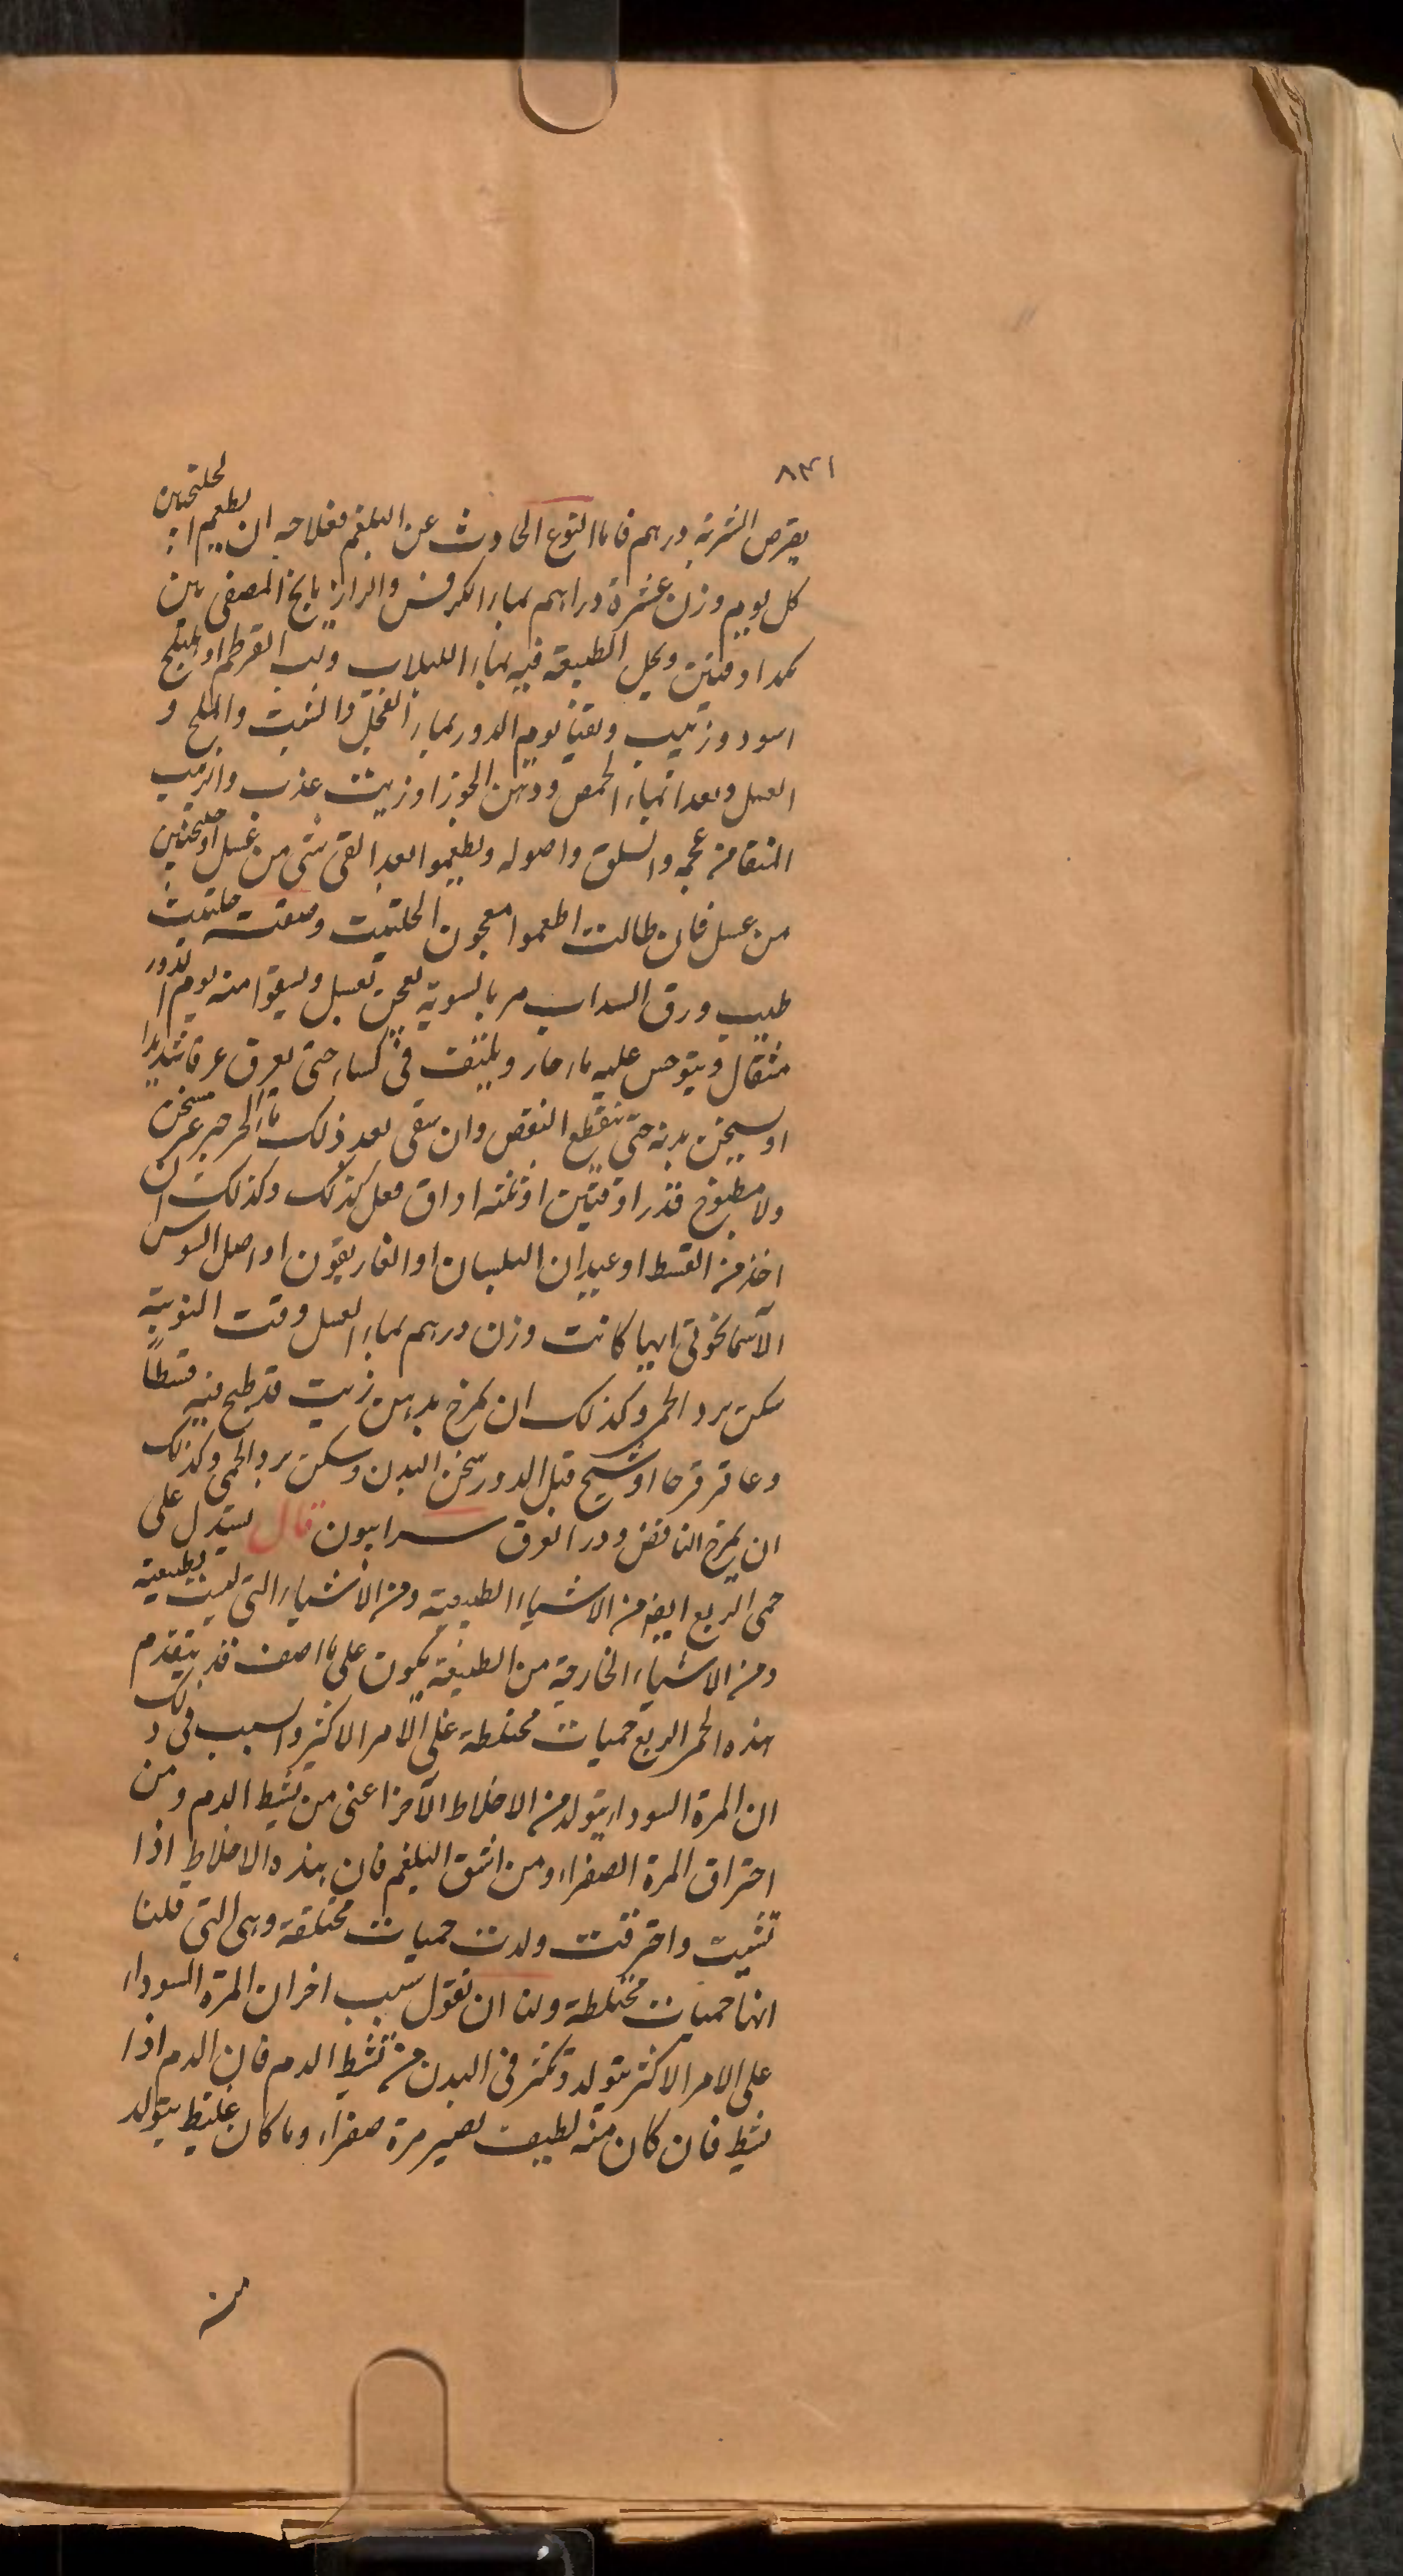 ٨٣١
يقرص الشربة درهم فاما النوع الحادث عن البلغم فعلاجه ان يطعم الجلنجبين
كل يوم وزن عشرة دراهم بماء الكرفس والرازيانج المصفى من
اوقيتين ويحل الطبيعة فيه بماء اللبلاب ولب القرطم او هليلج
اسود وزبيب ويقيأ يوم الدور بماء الفجل والشبث والملح و
العسل وبعد انماء الحمص ودهن الجوز او زيت عذب والزبيب
المنقا من عجمه والسلق واصوله ويطعموا بعد القي شي من عسل او سكنجبين
من عسل فان طالت اطعموا معجون الحلتيت وصفته حلتيت
طيب ورق السداب مر بالسوية يعجن بعسل ويسقوا منه يوم الدور
مثقال ويتوحس عليه ماء حار ويلتفت في كساء حتى يعرق عرقا شديدا
او يسخن بدنه حتى ينقطع النفض وان سقى بعد ذلك ماء الجرجير غير مسخن
ولا مطبوخ قدر اوقيتين او ثلثه اواق فعل كذلك وكذلك ان
اخذ من القسط او عيدان البلسان او الغاريقون او اصل السوس
الآسمانخوني ايها كانت وزن درهم بماء العسل وقت النوبة
سكن برد الحمى وكذلك ان يمرخ بدهن زيت قد طبخ فيه قسطاً
وعاقر قرحا او شيح قبل الدور سخن البدن وسكن برد الحمى وكذلك
ان يمرخ النافض ودر العرق سرابيون قال يستدل على
حمى الربع ايضا من الاشياء الطبيعية ومن الاشياء التي ليست بطبيعية
ومن الاشياء الخارجة من الطبيعة يكون على ما اصف قد يتقدم
هذه الحمى الربع حميات مختلطة على الامر الاكثر والسبب في ذلك
ان المرة السوداء يتولد من الاخلاط الآخر اعنى من تشيط الدم ومن
احتراق المرة الصفراء ومن البلغم فان هذه الاخلاط اذا
تشيت واحترقت ولدت حميات مختلفة وهي التي قلنا
انها حميات مختلطة ولنا ان نقول سبب اخر ان المرة السوداء
على الامر الاكثر يتولد وتكثر في البدن من تشيط الدم فان الدم اذا
نشيط فان كان منه لطيف تصير مرة صفراء وما كان غليظ يتولد
منه